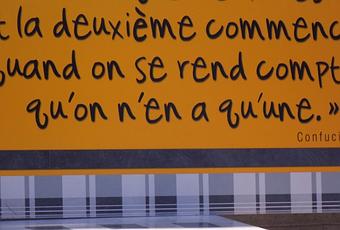 t la deuxième commenc
quand on se rend compt
qu'on n'en a qu'une. »
Confuci